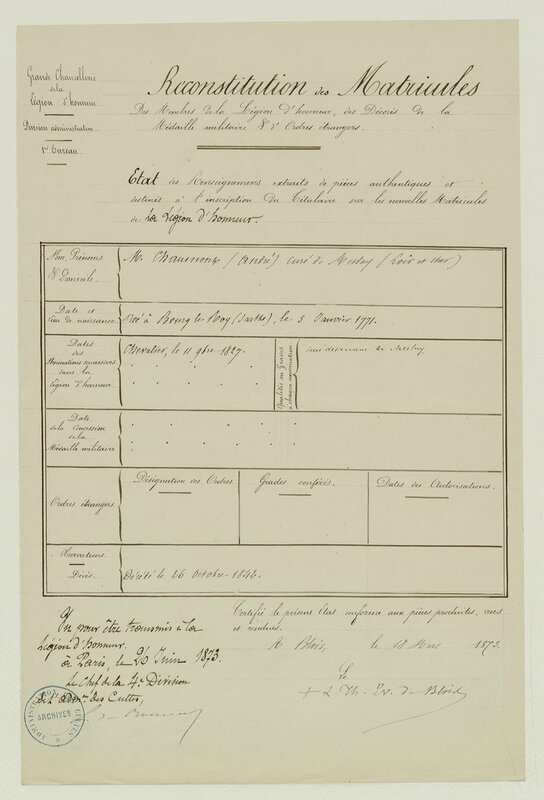 Grande Chancellerie
de la
Légion d'honneur.
Division administrative
1er Bureau.
Reconstitution des Matricules
Des Membres de la Légion d'honneur, des Décorés de la
Médaille militaire & d'Ordres étrangers.
Etat des Renseignements extraits de pièces authentiques et
destinés à l'inscription du Titulaire sur les nouvelles Matricules
de la Légion d'honneur.
Nom, Prénoms
& Domicile.
M. (André) curé de (Loir et cher)
Date et
lieu de naissance
Né à Bourg le Roy (Sarthe), le 3 Janvier 1771.
Dates
des
Nominations successives
dans la
Légion d'honneur
Chevalier, le 11 9bre 1827.
Qualités ou Grades
à chaque nomination
Curé desservant de
Date
de la concession
de la
Médaille militaire
Ordres étrangers
Désignation des Ordres.
Grades conférés.
Dates des Autorisations.
Observations
Décès.
Décédé le 26 Octobre 1842.
Certifié le présent Etat conforme aux pièces produites, vues
et rendues.
A Blois, le 18 Mars 1873.
Vu pour être transmis à la
Légion d'honneur.
à Paris, le 26 Juin 1873.
Le Chef de la 4e Division
de l'Admon. des Cultes,
Le
Ev. de Blois
ARCHIVES